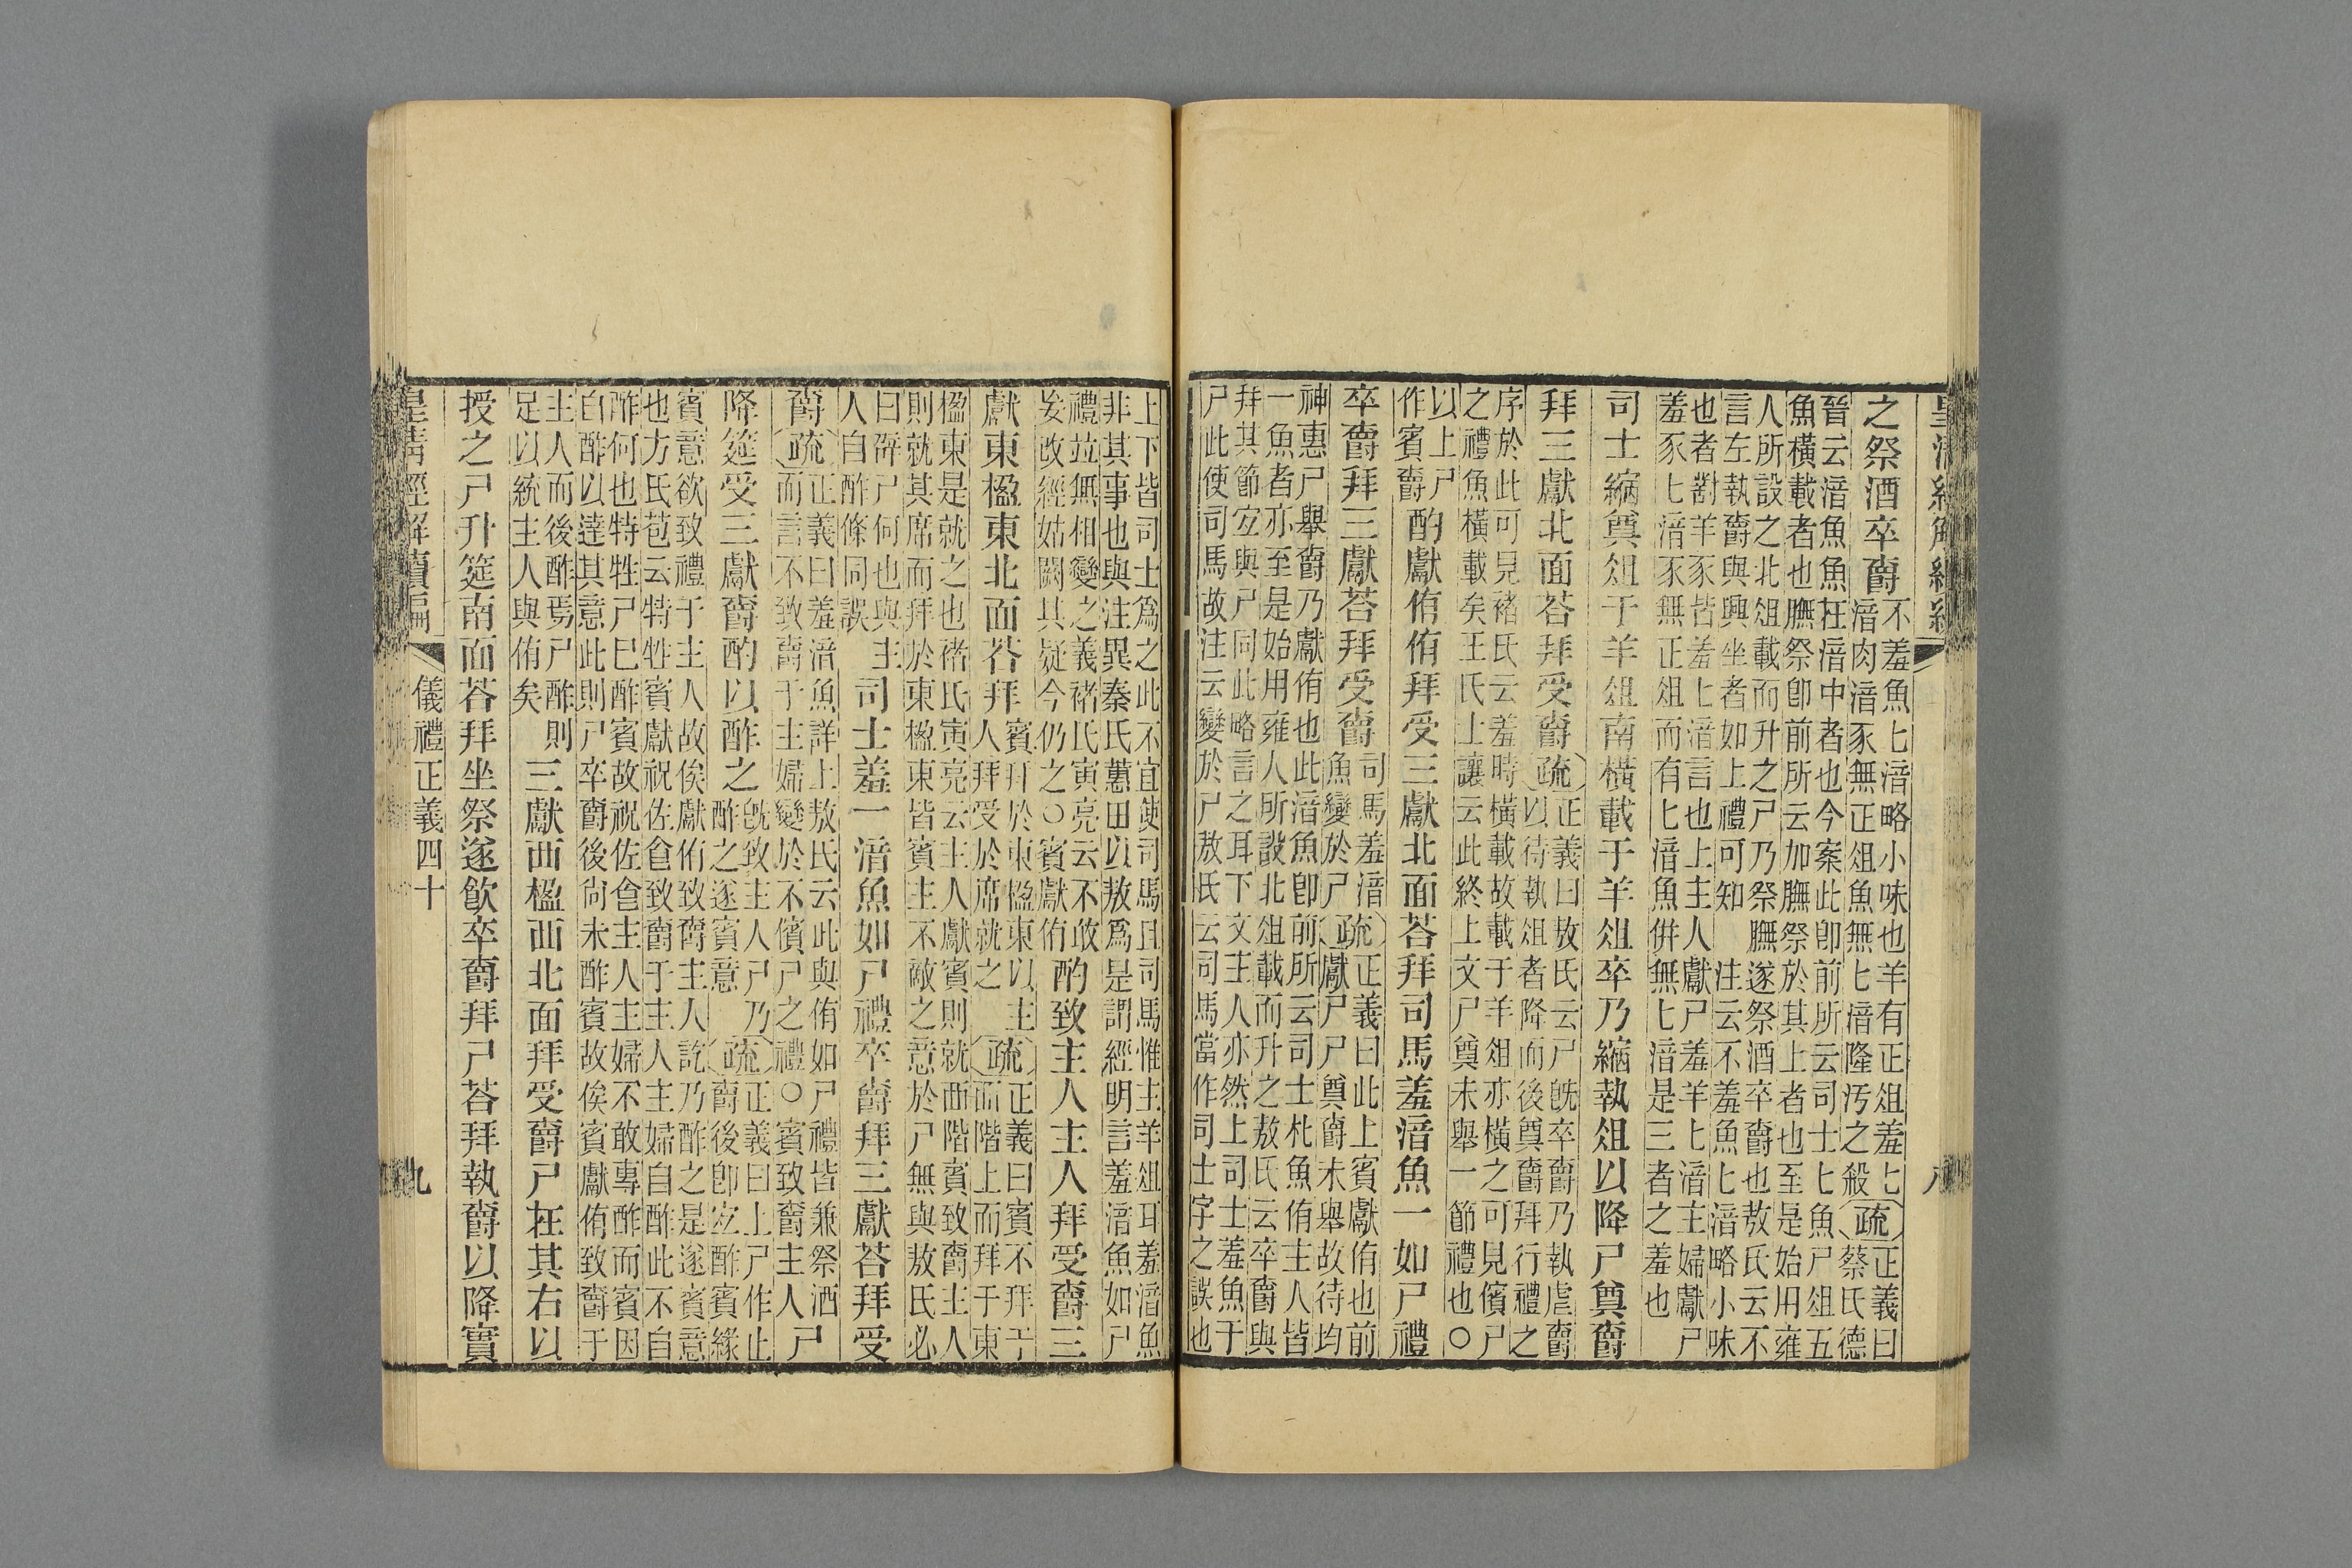 之祭酒卒爵不羞魚匕湇略小味也羊有正俎羞匕湇肉湇豕無正俎魚無匕湇隆汚之殺疏正義曰蔡氏德
晉云湇魚魚在湇中者也今案此卽前所云司士匕魚尸俎五魚橫載者也膴祭卽前所云加膴祭於其上者也至是始用雍
人所設之北俎載而升之尸乃祭膴遂祭酒卒爵也敖氏云不言左執爵與興坐者如上禮可知 注云不羞魚匕湇略小味
也者對羊豕皆羞匕湇言也上主人獻尸羞羊匕湇主婦獻尸羞豕匕湇豕無正俎而有匕湇魚併無匕湇是三者之羞也
司士縮奠俎于羊俎南橫載于羊俎卒乃縮執俎以降尸奠爵
拜三獻北面荅拜受爵疏正義曰敖氏云尸旣卒爵乃執虛爵以待執俎者降而後奠爵拜行禮之
序於此可見褚氏云羞時橫載故載于羊俎亦橫之可見儐尸之禮魚橫載矣王氏士讓云此終上文尸奠未舉一節禮也○
以上尸作賓爵酌獻侑侑拜受三獻北面荅拜司馬羞湇魚一如尸禮
卒爵拜三獻荅拜受爵司馬羞湇魚變於尸疏正義曰此上賓獻侑也前獻尸尸奠爵未舉故待均
神惠尸舉爵乃獻侑也此湇魚卽前所云司士朼魚侑主人皆一魚者亦至是始用雍人所設北俎載而升之敖氏云卒爵與
拜其節宐與尸同此略言之耳下文主人亦然上司士羞魚于尸此使司馬故注云變於尸敖氏云司馬當作司士字之誤也
上下皆司士爲之此不宜使司馬且司馬惟主羊俎耳羞湇魚非其事也與注異秦氏蕙田以敖爲是謂經明言羞湇魚如尸
禮竝無相變之義褚氏寅亮云不敢妄改經姑闕其疑今仍之○賓獻侑酌致主人主人拜受爵三
獻東楹東北面荅拜賓拜於東楹東以主人拜受於席就之疏正義曰賓不拜于西階上而拜于東
楹東是就之也褚氏寅亮云主人獻賓則就西階賓致爵主人則就其席而拜於東楹東皆賓主不敵之意於尸無與敖氏必
曰辟尸何也與主人自酢條同誤司士羞一湇魚如尸禮卒爵拜三獻荅拜受
爵疏正義曰羞湇魚詳上敖氏云此與侑如尸禮皆兼祭酒而言不致爵于主婦變於不儐尸之禮○賓致爵主人尸
降筵受三獻爵酌以酢之旣致主人尸乃酢之遂賓意疏正義曰上尸作止爵後卽宐酢賓緣
賓意欲致禮于主人故俟獻侑致爵主人訖乃酢之是遂賓意也方氏苞云特牲賓獻祝佐食致爵于主人主婦自酢此不自
酢何也特牲尸巳酢賓故祝佐食主人主婦不敢專酢而賓因自酢以達其意此則尸卒爵後尙未酢賓故俟賓獻侑致爵于
主人而後酢焉尸酢則足以統主人與侑矣三獻西楹西北面拜受爵尸在其右以
授之尸升筵南面荅拜坐祭遂飮卒爵拜尸荅拜執爵以降實
皇淸經解續編 儀禮正義四十 九